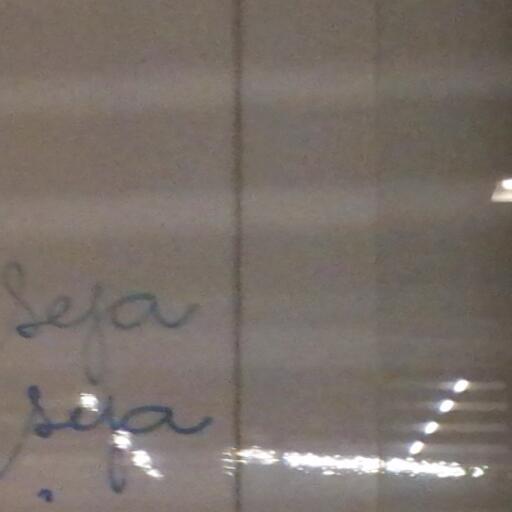 seja
seja